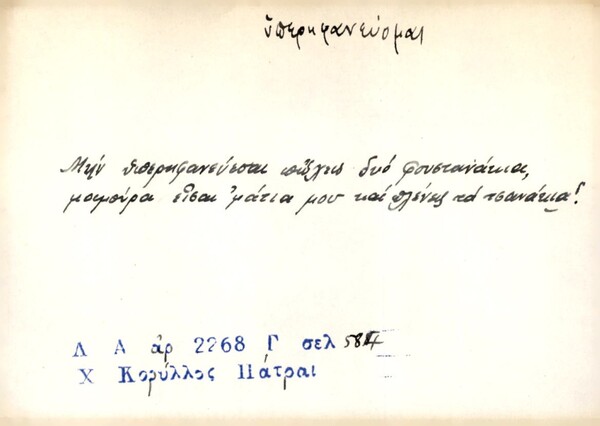 ὑπερηφανεύομαι
Μήν ὑπερηφανεύεσαι πὤχεις δυό φουστανάκια,
μαμούρα εἶσαι ᾽μάτια μου καί πλένεις τά τσανάκια!
Λ Α ἀρ 2268 Γ σελ 584
Χ Κορύλλος Πάτραι